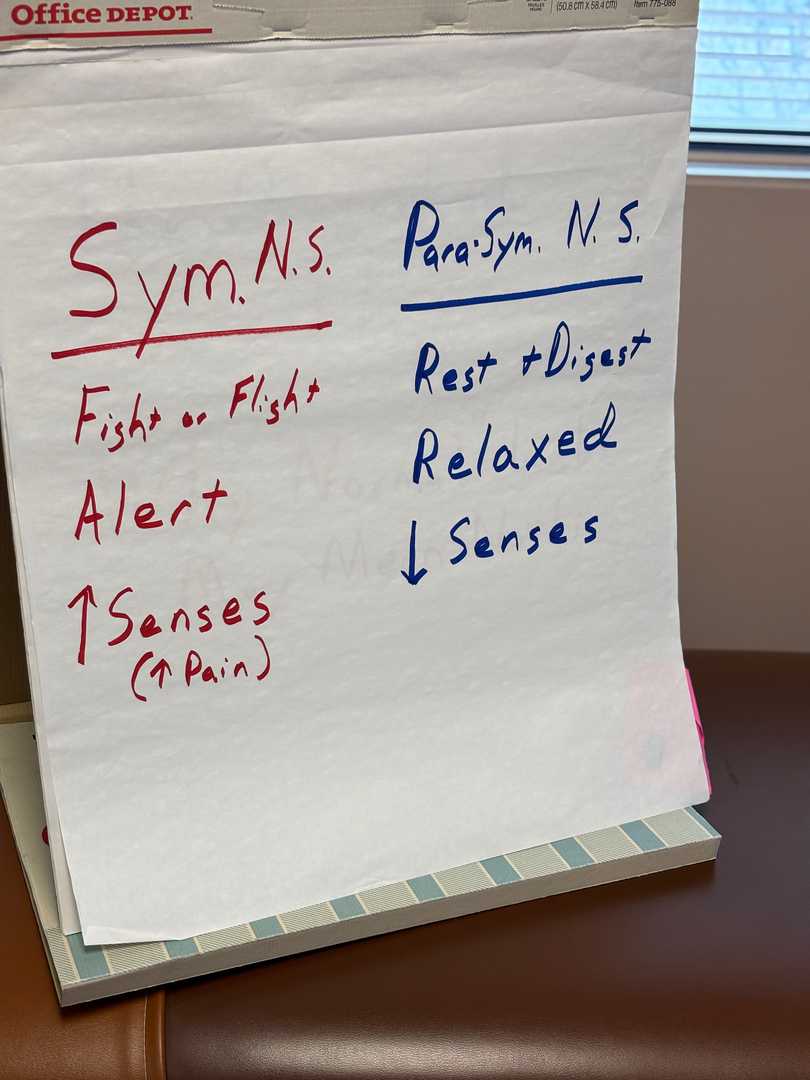 Office DEPOT.
(50.8 cm X 58.4 cm)
Item 775-088
Sym. N.S.
Fight or Flight
Alert
↑ Senses
(↑ Pain)
Para-Sym. N.S.
Rest + Digest
Relaxed
↓ Senses